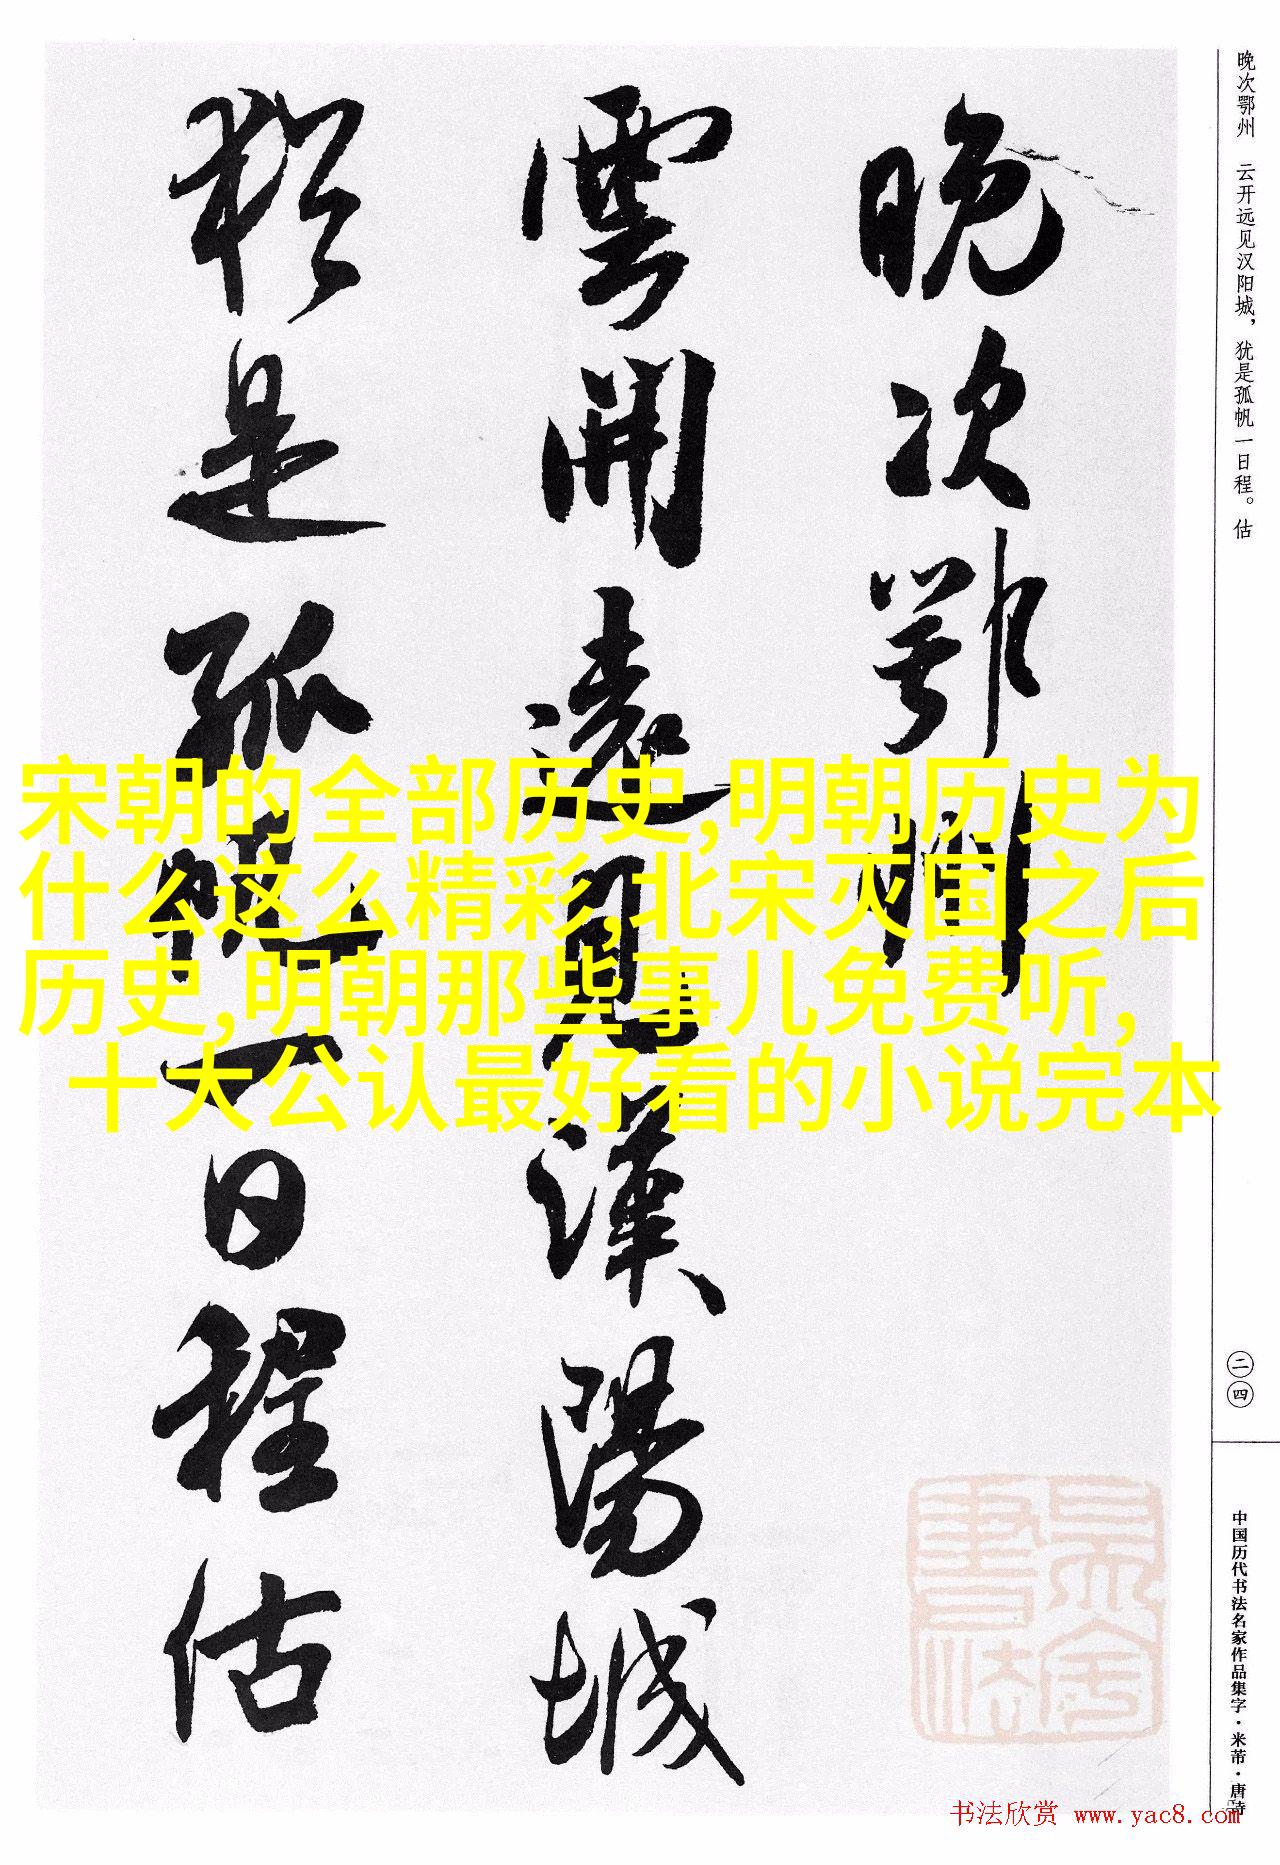 晚次鄂州
雲開遠見漢陽城
猶是孤帆一日程估
晚次鄂州 云开远见汉阳城，犹是孤帆一日程。估
二四
中国历代书法名家作品集字·米芾·唐诗
宋朝的全部历史,明朝历史为
什么这么精彩,北宋灭国之后
历史,明朝那些事儿免费听,
十大公认最好看的小说完本
书法欣赏 www.yac8.com